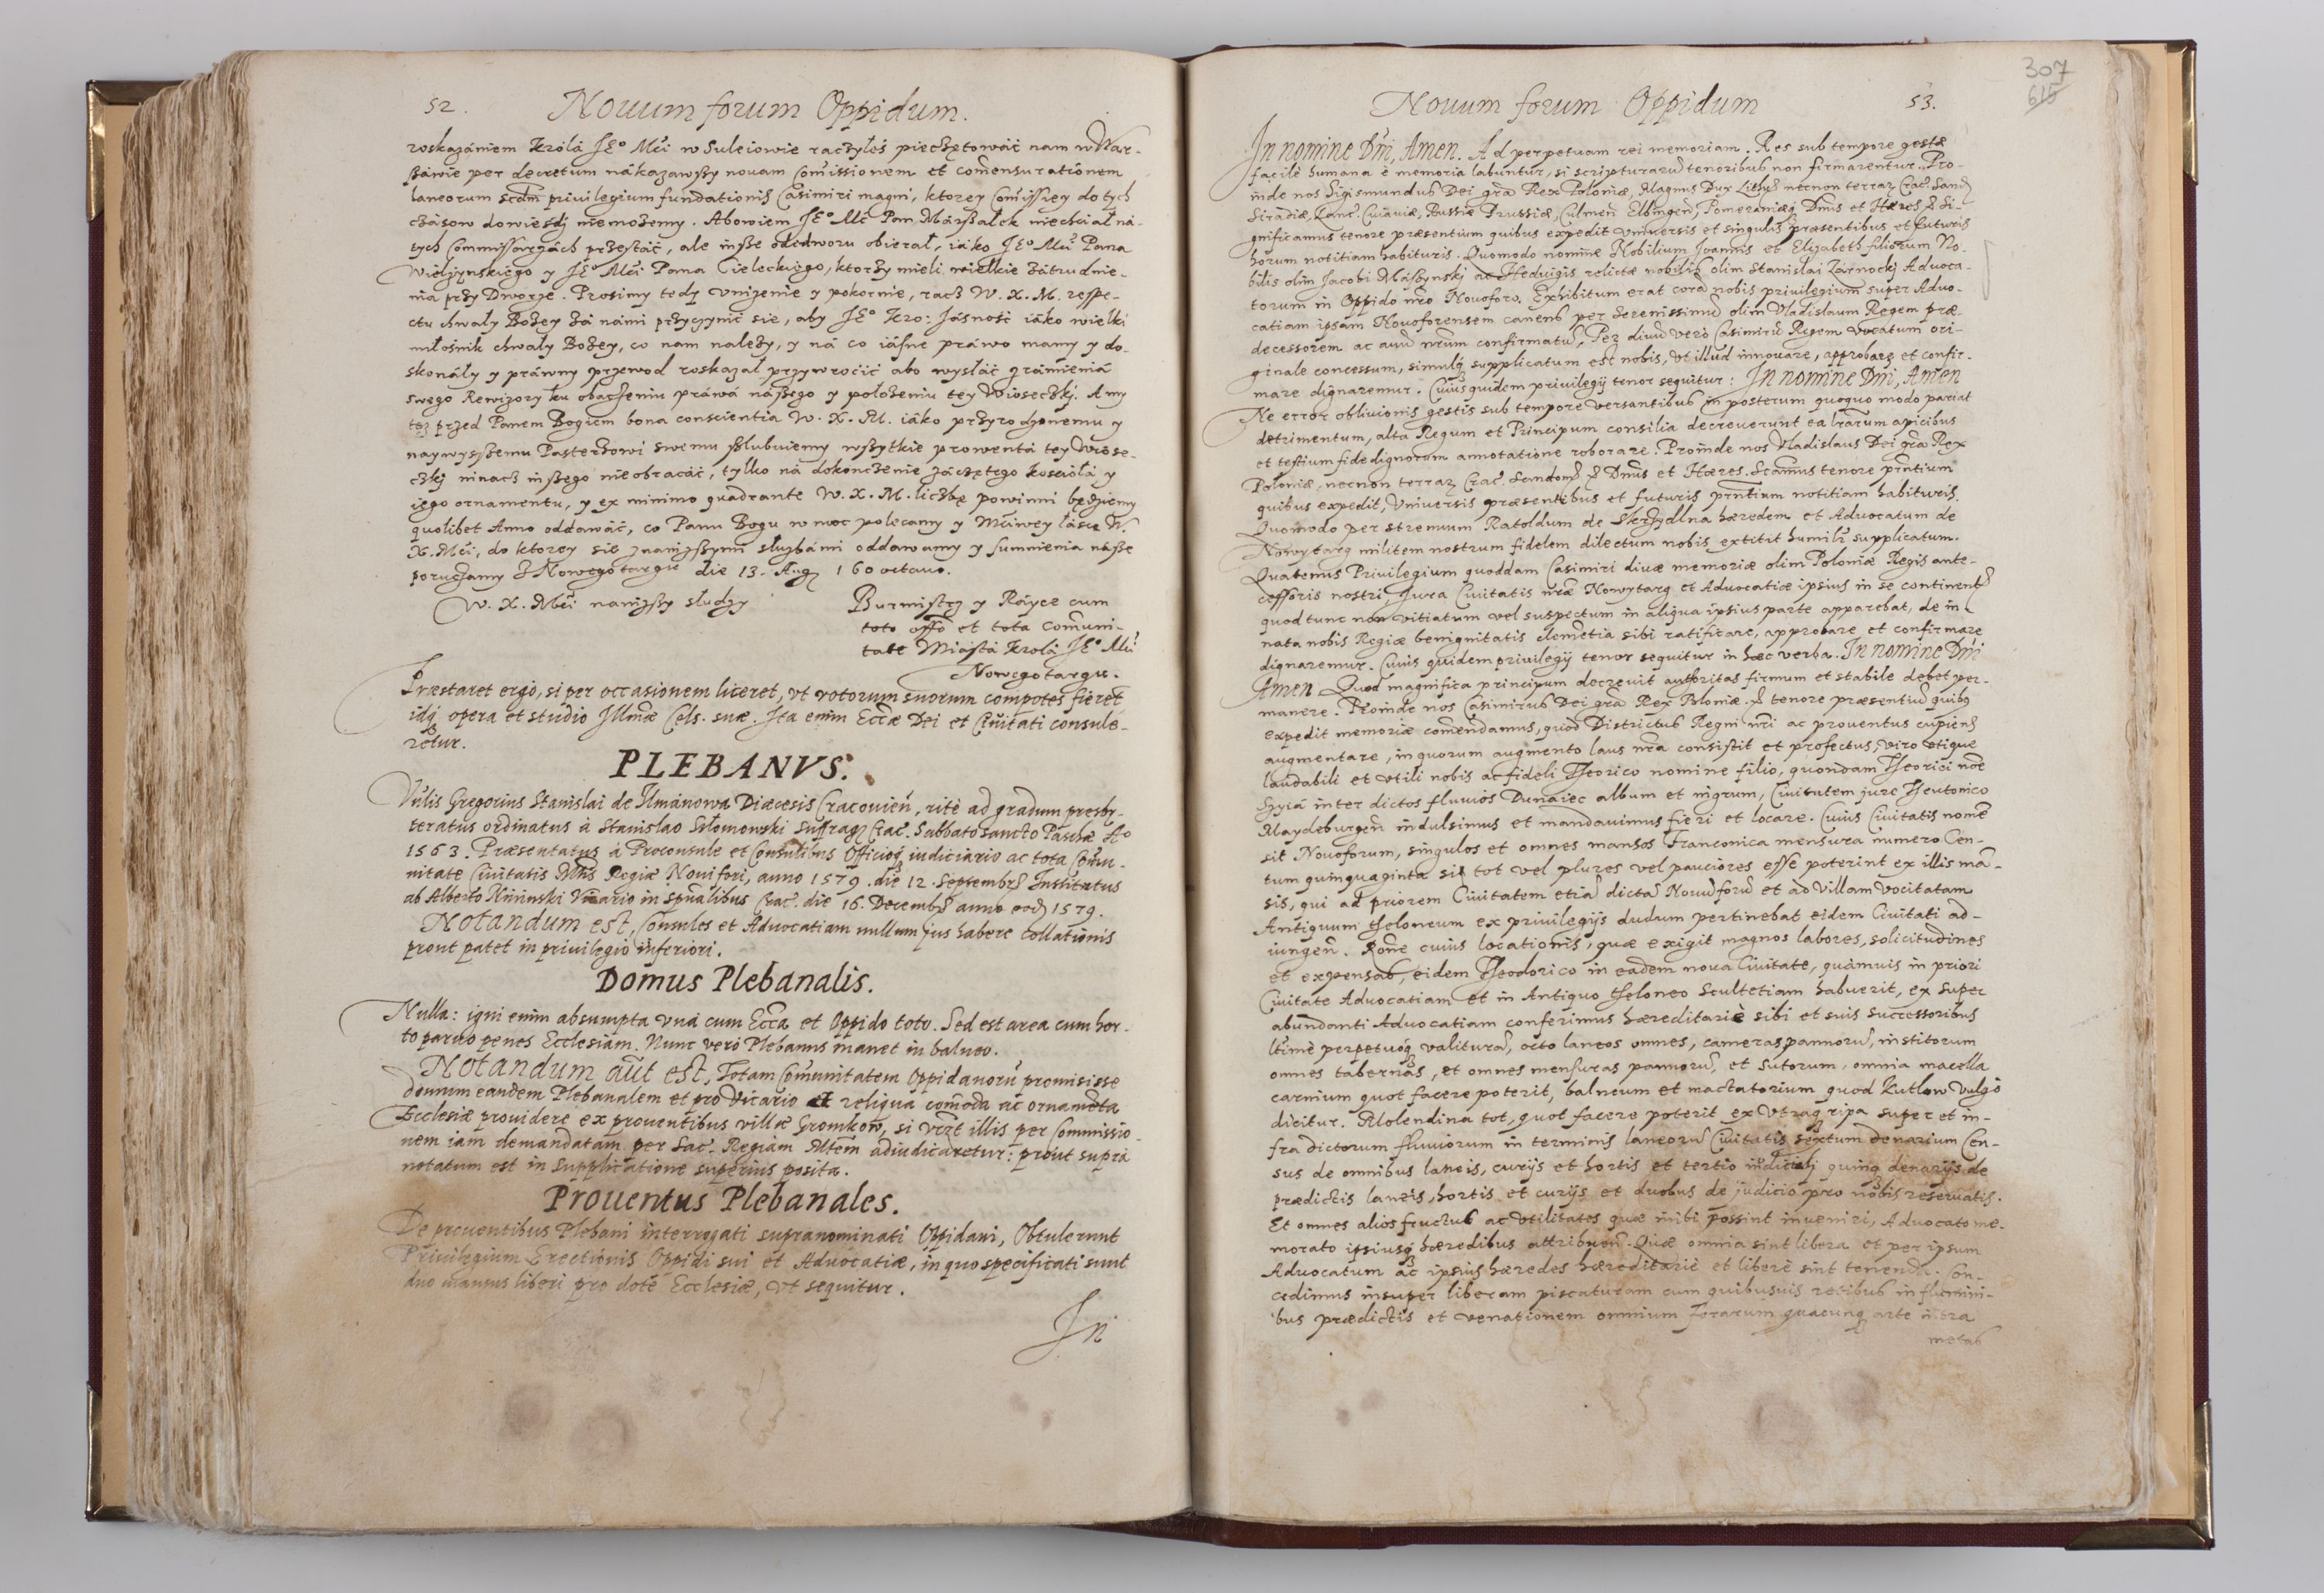 52.
Nouum forum Oppidum.
roskazániem Krolá JEº Mći w Suleiowie raczyłoś pieczętowáć nam w War-
ßáwie per decretum nákazawßy nouam Com̃issionem et com̃ensurationem
laneorum scdm priuilegium fundationis Casimiri magni, ktorey Com̃issiey do tych
czásow dowieśdz niemożemy. Abowiem JEº Mć Pan Márßałek niechciał ná-
tych Commissarzách przestáć, ale inße ode dworu obierał, iáko JEº Mći Pana
Wielżynskiego y JEº Mći Pana Cieleckiego, ktorzy mieli wielkie zátrudnie-
nia przy Dworze. Prosimy tedy vnizenie y pokornie, racz W. X. M. respe-
ctu chwały Bożey zá námi przyczynić sie, aby JEº Kro: Jásność iáko wielki
miłośnik chwały Bożey, co nam należy, y ná co iásne práwo mamy y do-
skonáły y práwny przewod roskazał przywroćić abo wysłáć z rámieniá
swego Rewizory ku obaczeniu práwá náßego y położeniu tey Wioseczki. A my
też przed Panem Bogiem bona conscientia W. X. M. iáko przyrodzonemu y
naywyßzemu Pasterzowi swemu ßlubuiemy wßytkie prowentá tey Wiose-
czki ninacz inßego nie obracáć, tylko ná dokonczenie záczętego kościołá y
iego ornamentu, y ex minimo quadrante W. X. M. liczbę powinni będziemy
quolibet Anno oddawáć, co Panu Bogu w moc polecamy y Mćiwey łásce W.
X. Mći, do ktorey sie z nanizßymi służbámi oddawamy y sumnienia náße
poruczamy Z Nowegotargu die 13. Aug 160 octauo.
W. X. Mći nanizßy słudzy
Burmistrz y Ráyce cum
toto offo et tota com̃uni-
tate Miástá Krolá JEº Mći
Nowegotargu.
Præstaret ergò, si per occasionem liceret, vt votorum suorum compotes fieret
idq opera et studio Illmæ Cels. suæ. Ita enim Eccæ Dei et Ciuitati consule-
retur.
PLEBANVS.
Vnlis Gregorius Stanislai de Ilmánowa Diæcesis Cracouien, ritè ad gradum presby-
teratus ordinatus à Stanislao Słomowski Suffrag Crac. Sabbato sancto Paschæ Aº
1563. Præsentatus à Proconsule et Consulibus Officioq iudiciario ac tota Com̃u-
nitate Ciuitatis Mtis Regiæ Noui fori, anno 1579. die 12. Septembr Institutus
ab Alberto Nininski Vicario in spũalibus Crac. die 16. Decembr anno eod 1579.
Notandum est, Consules et Aduocatiam nullum jus habere collationis
prout patet in priuilegio inferiori.
Domus Plebanalis.
Nulla: igni enim absumpta vnà cum Eccã et Oppido toto. Sed est area cum hor-
to paruo penes Ecclesiam. Nunc verò Plebanus manet in balneo.
Notandum aũt est, Totam Com̃unitatem Oppidanorũ promisisse
domum eandem Plebanalem et pro Vicario et reliqua com̃oda ac ornamẽta
Ecclesiæ prouidere ex prouentibus villæ Gromkow, si vczt illis per Commissio-
nem iam demandatam per Sac. Regiam Mtem adiudicaretur: prout suprà
notatum est in Supplicatione superius posita.
Prouentus Plebanales.
De prouentibus Plebani interrogati supranominati Oppidani, Obtulerunt
Priuilegium Erectionis Oppidi sui et Aduocatiæ, in quo specificati sunt
duo mansus liberi pro dote Ecclesiæ, vt sequitur.
In
307
615
Nouum forum Oppidum
53.
In nomine Dñi, Amen. Ad perpetuam rei memoriam. Res sub tempore gestæ
facilè humana è memoria labuntur, si scripturarũ tenoribus non firmarentur. Pro-
inde nos Sigismundus Dei grã Rex Poloniæ, Magnus Dux Lithv necnon terrar Crac. Sand
Siradiæ, Lanc. Cuiauiæ, Russiæ Prussiæ, Culmen Elbingen, Pomeraniæq Dñus et Hæres Si-
gnificamus tenore præsentium quibus expedit vniuersis et singulis præsentibus et futuris
horum notitiam habituris. Quomodo nomine Nobilium Joannis et Elizabeth filiorum No-
bilis olim Jacobi Máßynski ac Heduigis relictæ nobilis olim Stanislai Zárnocki Aduoca-
torum in Oppido nr̃o Nouoforo. Exhibitum erat corã nobis priuilegium super Aduo-
catiam ipsam Nouoforensem canens per Serenissimũ olim Vladislaum Regem præ-
decessorem ac auũ nr̃um confirmatũ, Per diuũ verò Casimirũ Regem vocatum ori-
ginale concessum, simulq supplicatum est nobis, vt illud innouare, approbareq et confir-
mare dignaremur. Cuius quidem priuilegij tenor sequitur: In nomine Dñi, Amen
Ne error obliuionis gestis sub tempore versantibus in posterum quoquo modo pariat
detrimentum, alta Regum et Principum consilia decreuerunt ea lr̃arum apicibus
et testium fide dignorum annotatione roborare. Proinde nos Vladislaus Dei grã Rex
Poloniæ, necnon terrar Crac. Sandom Dñus et Hæres. Scãmus tenore pr̃ntium
quibus expedit, Vniuersis præsentibus et futuris pr̃ntium notitiam habituris,
Quomodo per strenuum Ratoldum de Skrzydlna hæredem et Aduocatum de
Nowytarg militem nostrum fidelem dilectum nobis extitit humilr supplicatum.
Quatenus Priuilegium quoddam Casimiri diuæ memoriæ olim Poloniæ Regis ante-
cessoris nostri Jura Ciuitatis nr̃æ Nowytarg et Aduocatiæ ipsius in se continens
quod tunc non vitiatum vel suspectum in aliqua ipsius parte apparebat, de in-
nata nobis Regiæ benignitatis clemẽtia sibi ratificare, approbare et confirmare
dignaremur. Cuius quidem priuilegij tenor sequitur in hæc verba. In nomine Dñi
Amen Quod magnifica principum decreuit authoritas firmum et stabile debet per-
manere. Proinde nos Casimirus Dei grã Rex Poloniæ. tenore præsentiũ quibq
expedit memoriæ com̃endamus, quod Districtus Regni nr̃i ac prouentus cupiens
augmentare, in quorum augmento laus nr̃a consistit et profectus, viro vtique
laudabili et vtili nobis ac fideli Theorico nomine filio, quondam Theorici nõe
Szyiá inter dictos fluuios Dunáiec album et nigrum, Ciuitatem jure Theutonico
Maydeburgen indulsimus et mandauimus fieri et locare. Cuius Ciuitatis nomẽ
sit Nouoforum, singulos et omnes mansos Franconica mensura numero Cen-
tum quinquaginta si tot vel plures vel pauciores esse poterint ex illis mã-
sis, qui ad priorem Ciuitatem etiã dictã Nouũforũ et ad Villam vocitatam
Antiquum theloneum ex priuilegijs dudum pertinebat eidem Ciuitati ad-
iungen. Rõne cuius locationis, quæ exigit magnos labores, solicitudines
et expensas, eidem Theodorico in eadem noua Ciuitate, quàmuis in priori
Ciuitate Aduocatiam et in Antiquo theloneo Scultetiam habuerit, ex super
abundanti Aduocatiam conferimus hæreditariè sibi et suis successoribus
ltimè perpetuoq valiturã, octo laneos omnes, cameras pannorũ, institorum
omnes tabernas, et omnes mensuras pannorũ, et sutorum, omnia macella
carnium quot facere poterit, balneum et mactatorium quod Kutlow vulgò
dicitur. Molendina tot, quot facere poterit ex vtraq ripa super et in-
fra dictorum fluuiorum in terminis laneorũ Ciuitatis sextum denarium Cen-
sus de omnibus laneis, curijs et hortis et tertio iudiciali quinq denarijs de
prædictis laneis, hortis et curijs et duobus de judicio pro nobis reseruatis.
Et omnes alios fructus ac vtilitates quæ inibi possint inueniri, Aduocato me-
morato ipsiusq hæredibus attribuen. Quæ omnia sint libera et per ipsum
Aduocatum ac ipsius hæredes hæreditariè et liberè sint tenenda. Con-
cedimus insuper liberam piscaturam cum quibusuis retibus in flumini-
bus prædictis et venationem omnium ferarum quacunq arte intra
metas